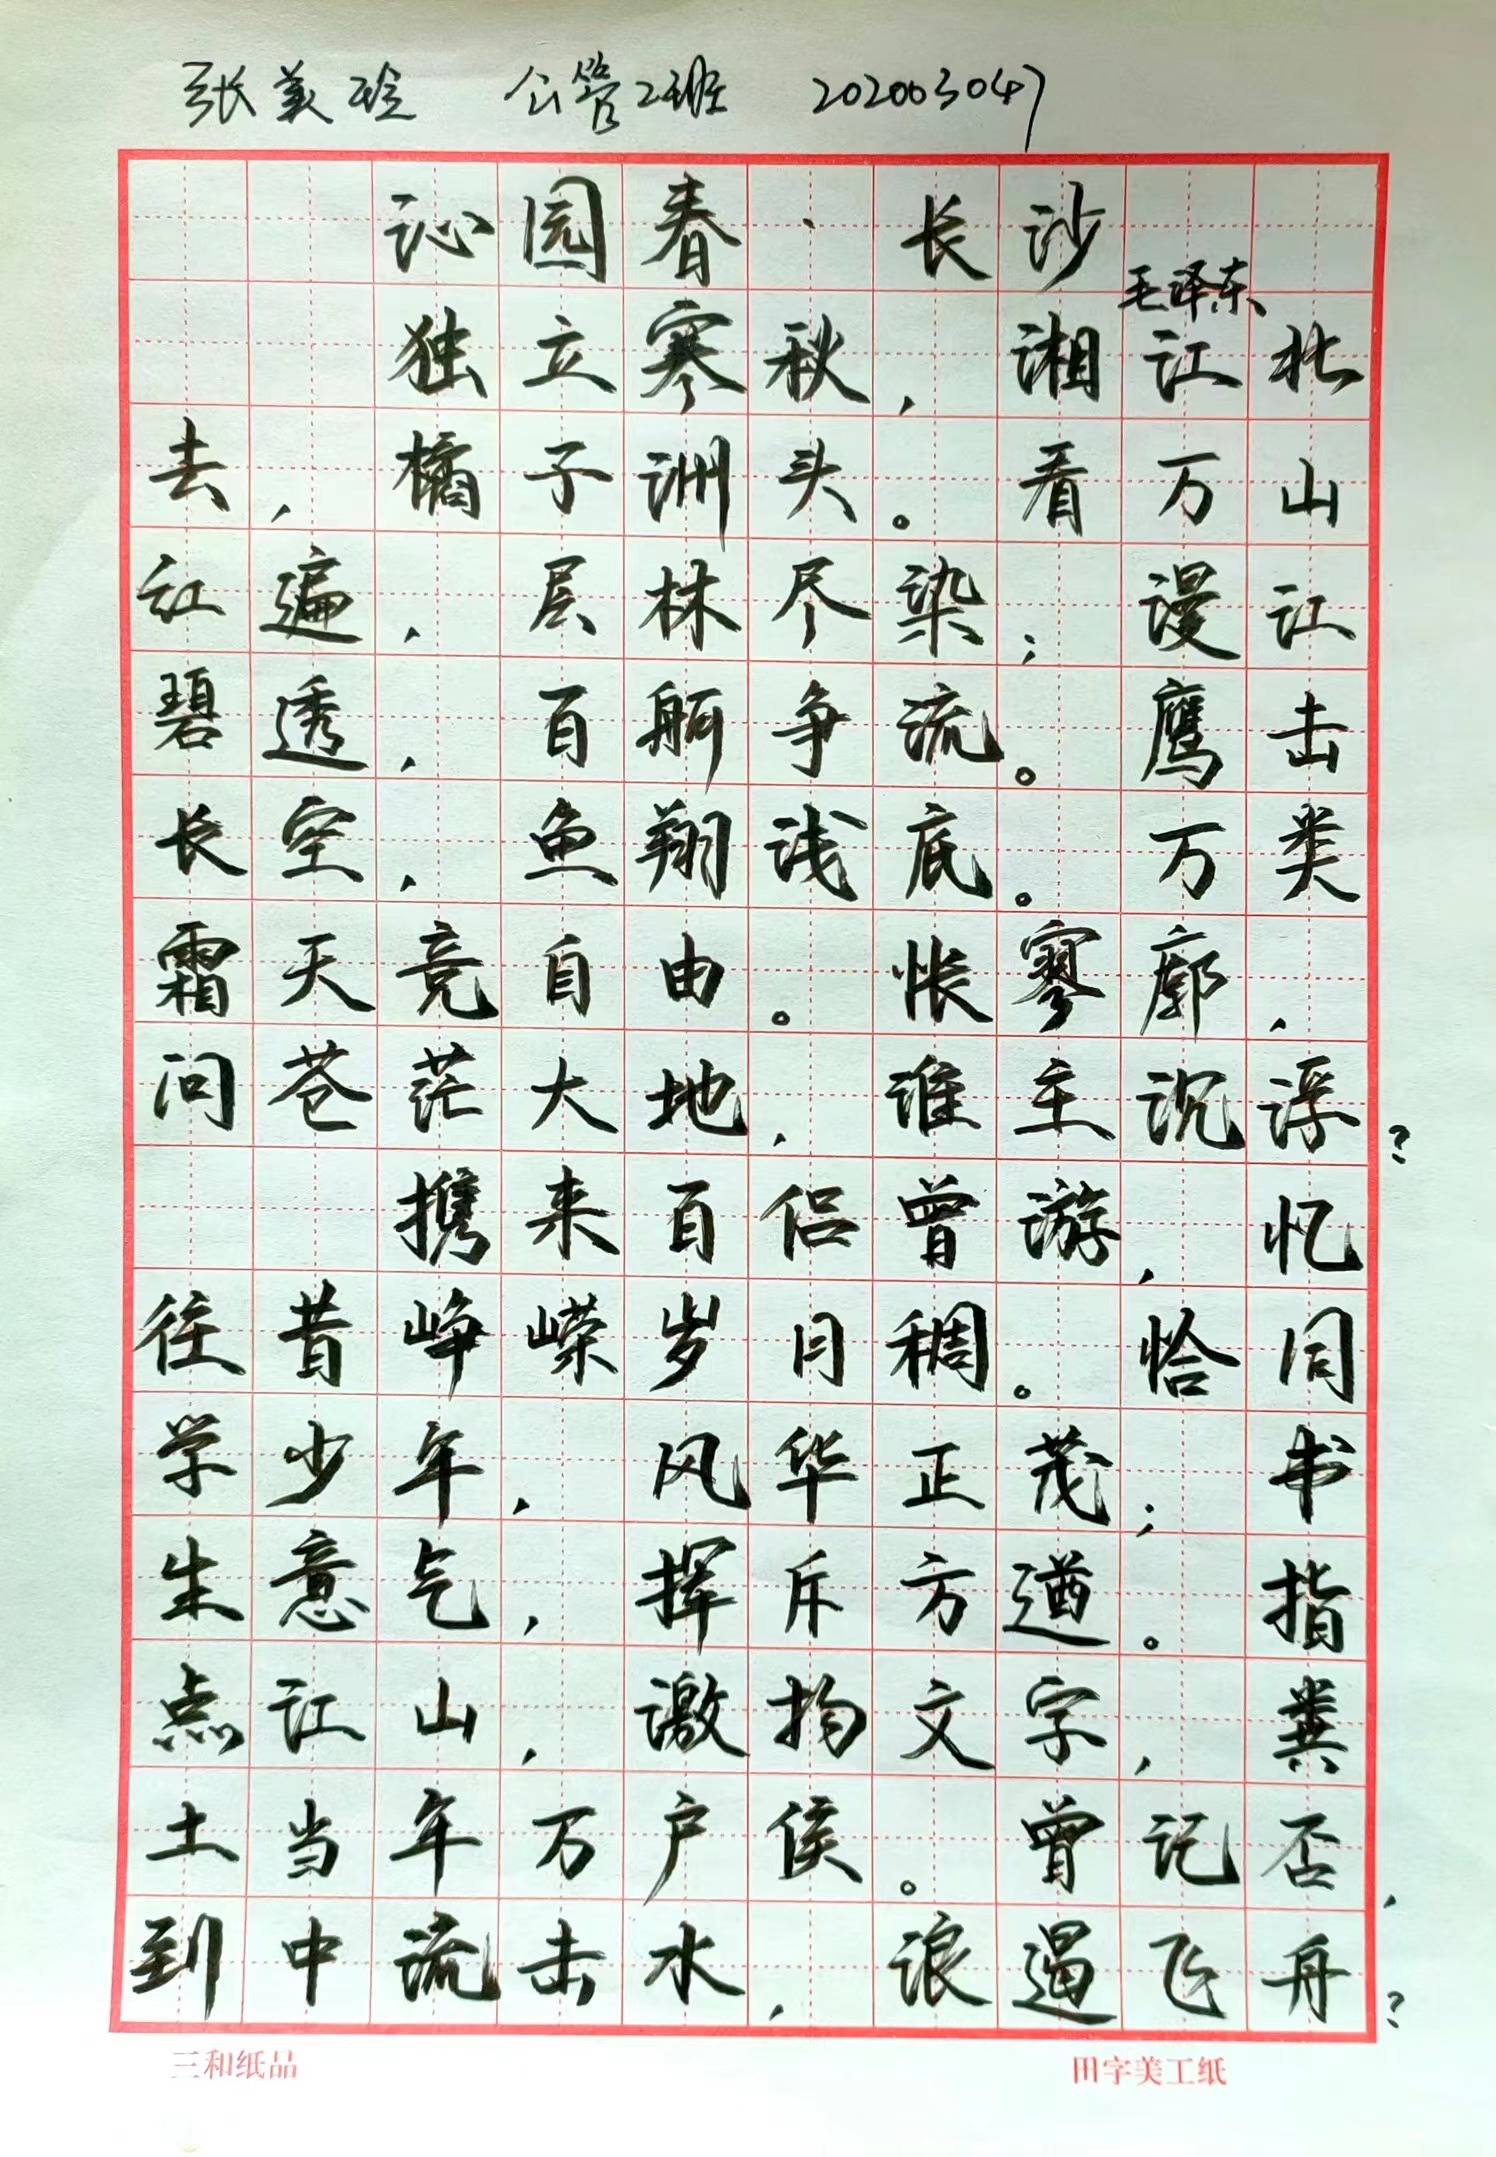 张美玲 公管2班 202003047
沁园春·长沙
毛泽东
独立寒秋，湘江北
去，橘子洲头。看万山
红遍，层林尽染；漫江
碧透，百舸争流。鹰击
长空，鱼翔浅底。万类
霜天竞自由。怅寥廓，
问苍茫大地，谁主沉浮？
携来百侣曾游，忆
往昔峥嵘岁月稠。恰同
学少年，风华正茂；书
生意气，挥斥方遒。指
点江山，激扬文字，粪
土当年万户侯。曾记否，
到中流击水，浪遏飞舟？
三和纸品 田字美工纸